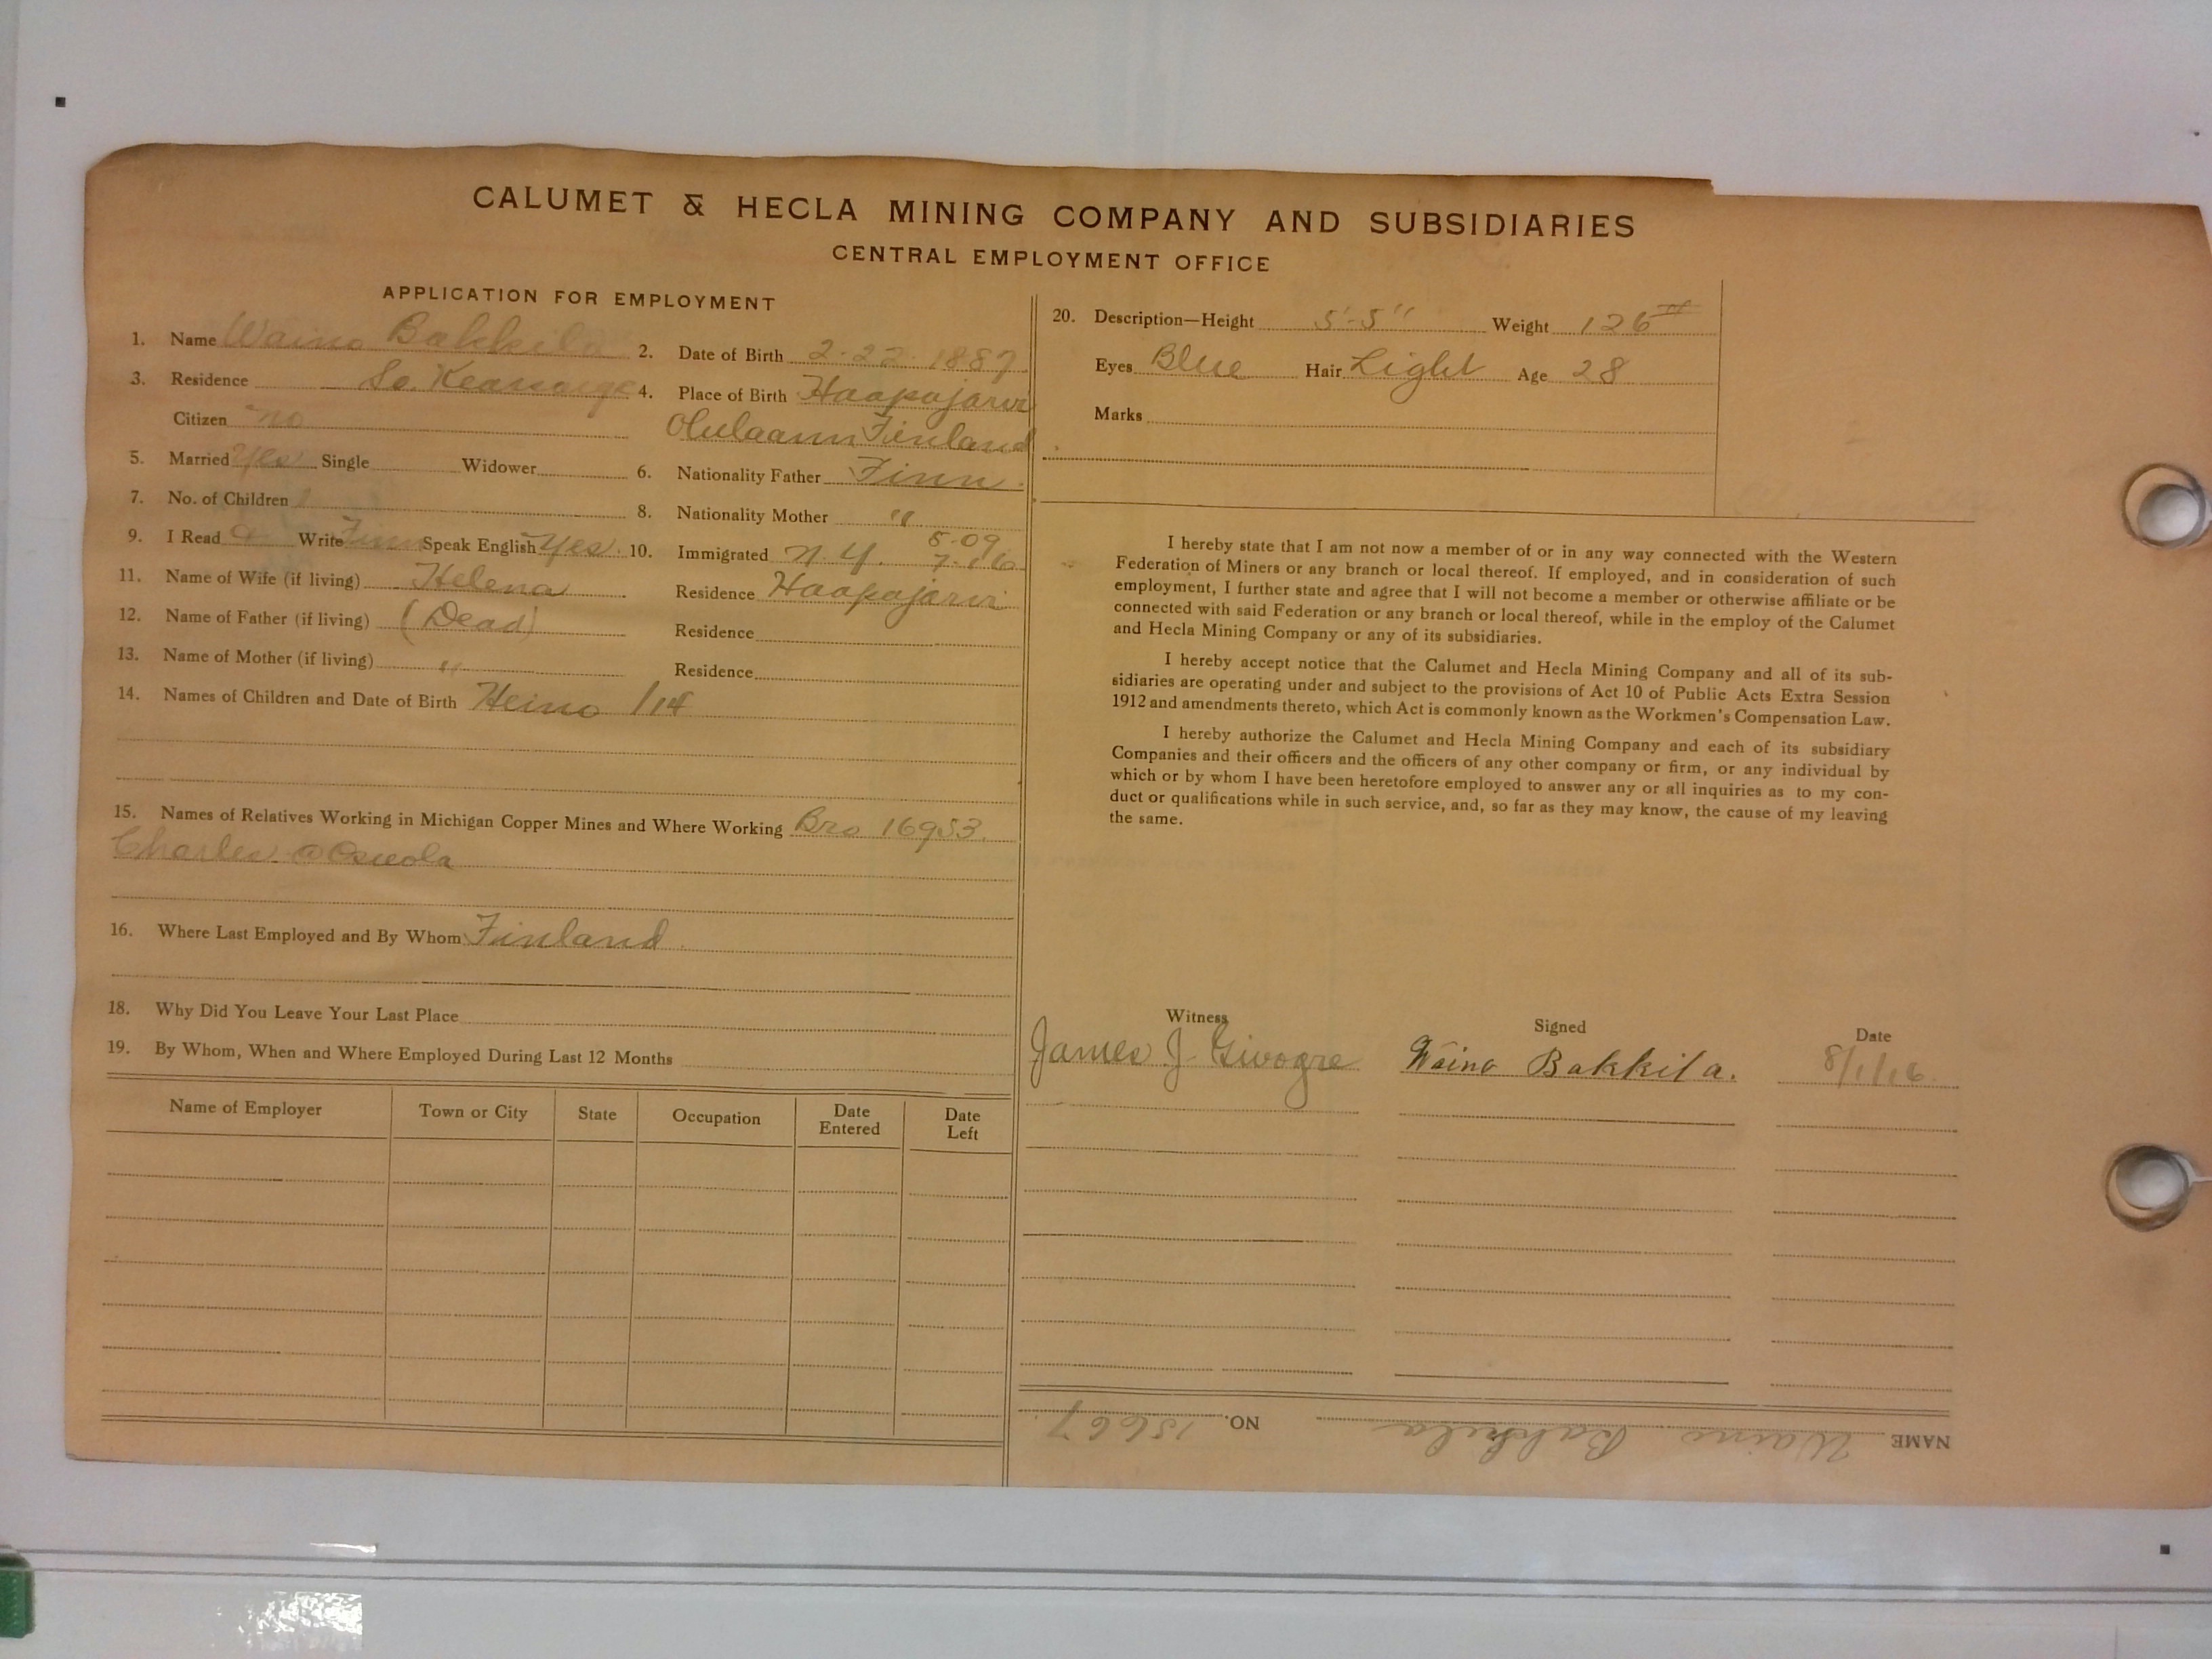 CALUMET & HECLA MINING COMPANY AND SUBSIDIARIES
CENTRAL EMPLOYMENT OFFICE
APPLICATION FOR EMPLOYMENT
1. Name Waino Bakkila 2. Date of Birth 2-22-1887
3. Residence So. Kearsarge 4. Place of Birth Haapajarvi
Citizen no Finland
5. Married Yes Single Widower 6. Nationality Father Finn.
7. No. of Children 1 8. Nationality Mother "
9. I Read & Write Finn Speak English Yes. 10. Immigrated N.Y. 5-09 7-16
11. Name of Wife (if living) Helena Residence Haapajarvi
12. Name of Father (if living) (Dead) Residence
13. Name of Mother (if living) " Residence
14. Names of Children and Date of Birth Heino 1/14
15. Names of Relatives Working in Michigan Copper Mines and Where Working Bro 16953.
Charles @ Osceola
16. Where Last Employed and By Whom Finland.
18. Why Did You Leave Your Last Place
19. By Whom, When and Where Employed During Last 12 Months
Name of Employer Town or City State Occupation Date Entered Date Left
20. Description—Height 5'-5" Weight 126 #
Eyes Blue Hair Light Age 28
Marks
I hereby state that I am not now a member of or in any way connected with the Western
Federation of Miners or any branch or local thereof. If employed, and in consideration of such
employment, I further state and agree that I will not become a member or otherwise affiliate or be
connected with said Federation or any branch or local thereof, while in the employ of the Calumet
and Hecla Mining Company or any of its subsidiaries.
I hereby accept notice that the Calumet and Hecla Mining Company and all of its sub-
sidiaries are operating under and subject to the provisions of Act 10 of Public Acts Extra Session
1912 and amendments thereto, which Act is commonly known as the Workmen's Compensation Law.
I hereby authorize the Calumet and Hecla Mining Company and each of its subsidiary
Companies and their officers and the officers of any other company or firm, or any individual by
which or by whom I have been heretofore employed to answer any or all inquiries as to my con-
duct or qualifications while in such service, and, so far as they may know, the cause of my leaving
the same.
Witness Signed Date
James J. Givogre Waino Bakkila. 8/1/16.
NAME Waino Bakkila NO. 15667